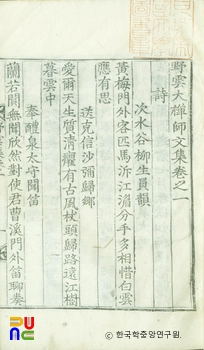 野雲大禪師文集卷之一
詩
次水谷柳生員韻
黃梅門外客匹馬浙江湄分手多相惜白雲
應有思
送克信沙彌歸鄉
愛爾天生質清癯有古風杖頭歸路遠江樹
暮雲中
奉醴泉太守聞笛
蘭若閴無聞欣然對使君曹溪門外笛聊奏
ⓒ 한국학중앙연구원